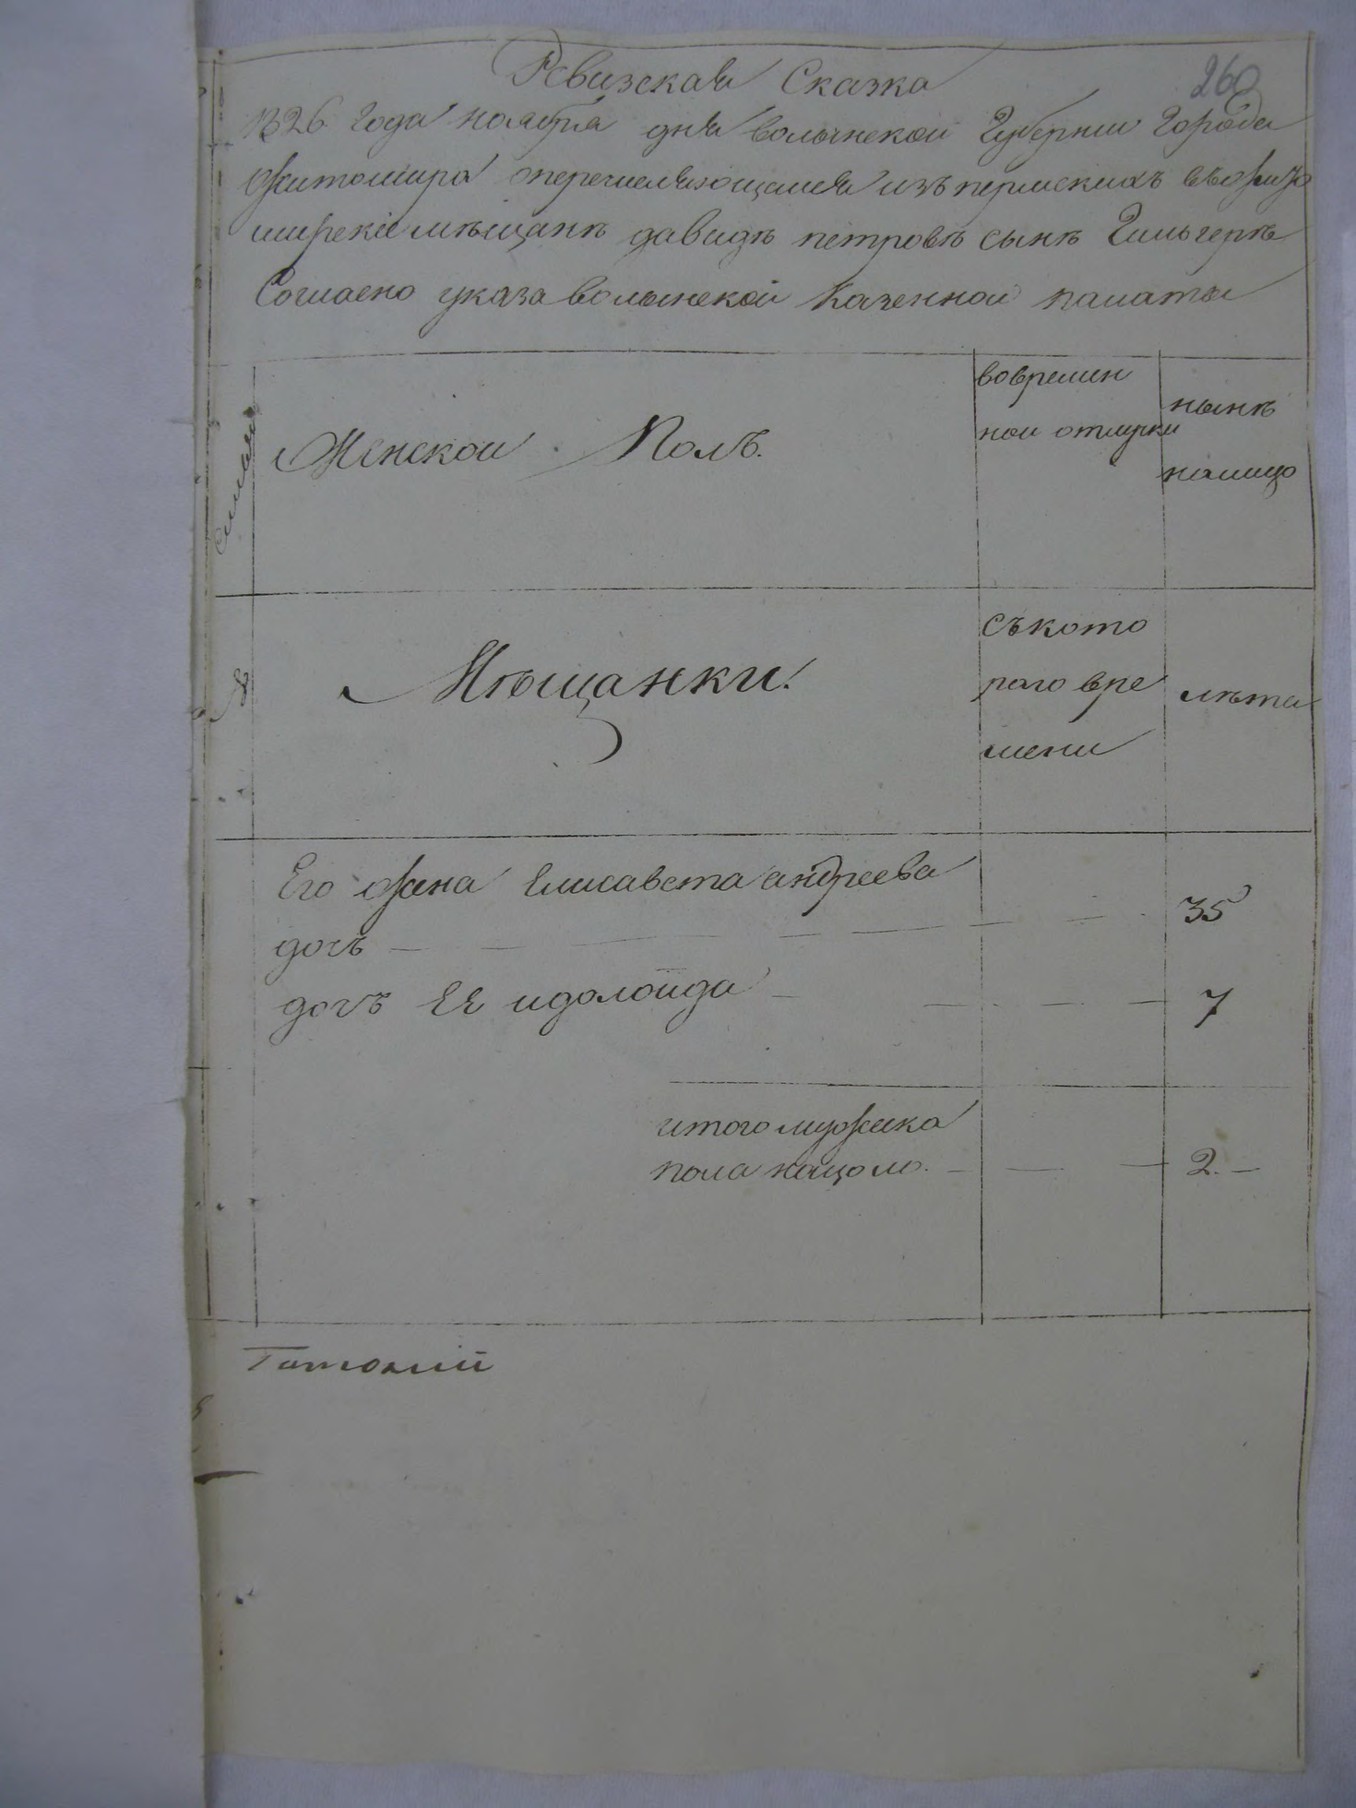 260
Ревизская Сказка
1826 года ноября дня волынской Губернии Города
Житомира перечисляющимся изъ пермскихъ въ жито
мирскіе мѣщанъ давидъ петровъ сынъ
Согласно указа волынской Казенной палаты
Женской Полъ.
вовремян
ной отлучки
нынѣ
налицо
семьи
№
Мѣщанки.
съ кото
раго вре
мени
лѣта
Его жена Елисавета андреева
дочь — — — — — 35
дочъ Ея идолоида — — — 7
итого мужска
пола налицо — — — 2. —